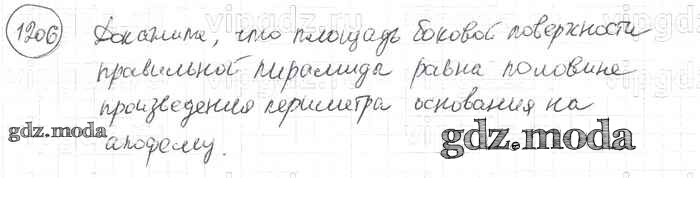 vipgdz.ru
1206 Докажите, что площадь боковой поверхности
правильной пирамиды равна половине
произведения периметра основания на
апофему.
gdz.moda
gdz.moda